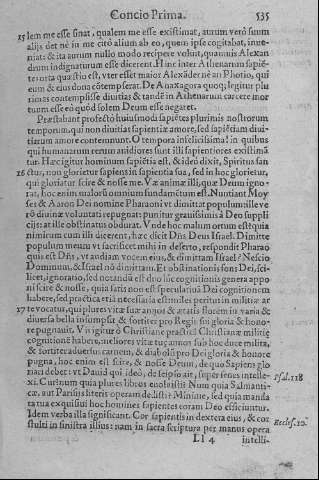 Concio Prima. 535
15 lem me esse sinat, qualem me esse existimat, aurum verò suum
alijs det nè in me citò alium ab eo, quem ipse cogitabat, inue-
niat: & ita aurum nullo modo recipere voluit, quamuis Alexan
drum indignaturum esse dicerent. Hinc inter Athenarum sapiē-
tes orta quæstio est, vter esset maior Alexāder nè an Photio, qui
eum & eius dona cōtempserat. De Anaxagora quoq; legitur plu
rimas contempsisse diuitias & tandē in Athenarum carcere mor
tuum esse eò quòd solem Deum esse negaret.
Præstabant profectò huiusmodi sapiētes plurimis nostrorum
temporum, qui non diuitias sapientiæ amore, sed sapiētiam diui-
tiarum amore contemnunt. O tempora infelicissima! in quibus
qui humanarum rerum auidiores sunt illi sapientiores existimā
tur. Hæc igitur hominum sapiētia est, & ideò dixit, Spiritus san
16 ctus, non glorietur sapiens in sapientia sua, sed in hoc glorietur,
qui gloriatur scire & nosse me. Væ animæ illi, quæ Deum igno-
rat, hoc enim malorū omnium fundamētum est. Nuntiant Moy
ses & Aaron Dei nomine Pharaoni vt dimittat populum ille ve
rò diuinæ voluntati repugnat: punitur grauissimis à Deo suppli
cijs: at ille obstinatus obdurat. Vnde hoc malum ortum est? quia
nimirum cum illi dicerent, hæc dicit Dñs Deus Israel. Dimitte
populum meum vt sacrificet mihi in deserto, respondit Pharao
quis est Dñs, vt audiam vocem eius, & dimittam Israel? Nescio
Dominum, & Israel nō dimittam. Et obstinationis fons Dei, sci-
licet, ignoratio, sed notandū est duo hic cognitionis genera appo
ni scire & nosse, quia satis non est speculatiuā Dei cognitionem
habere, sed practica etiā necessaria est: miles peritus in militiæ ar
17 te vocatus, qui plures vitæ suæ annos & ætatis florem in varia &
diuersa bella insumpsit & fortiter pro Regis sui gloria & hono-
re pugnauit. Vt igitur ò Christiane practicā Christianæ militiæ
cognitionē habere, meliores vitæ tuæ annos sub hoc duce milita,
& fortiter aduersus carnem, & diabolū pro Dei gloria & honore
pugna, hoc enim est scire, & nosse Deum, de quo Sapiens glo
riari debet: vt Dauid qui ideò, de se ipso ait, super senes intelle-
xi. Cur? num quia plures libros euoluisti? Num quia Salmanti-
cæ, aut Parisijs literis operam dedisti? Minime, sed quia manda
ta tua exquisiui hoc homines sapientes coram Deo efficiuntur.
Idem verba illa significant. Cor sapientis in dextera eius, & cor
stulti in sinistra illius: nam in sacra scriptura per manus opera
Ll 4 intelli-
Psal. 118
Eccles. 10.